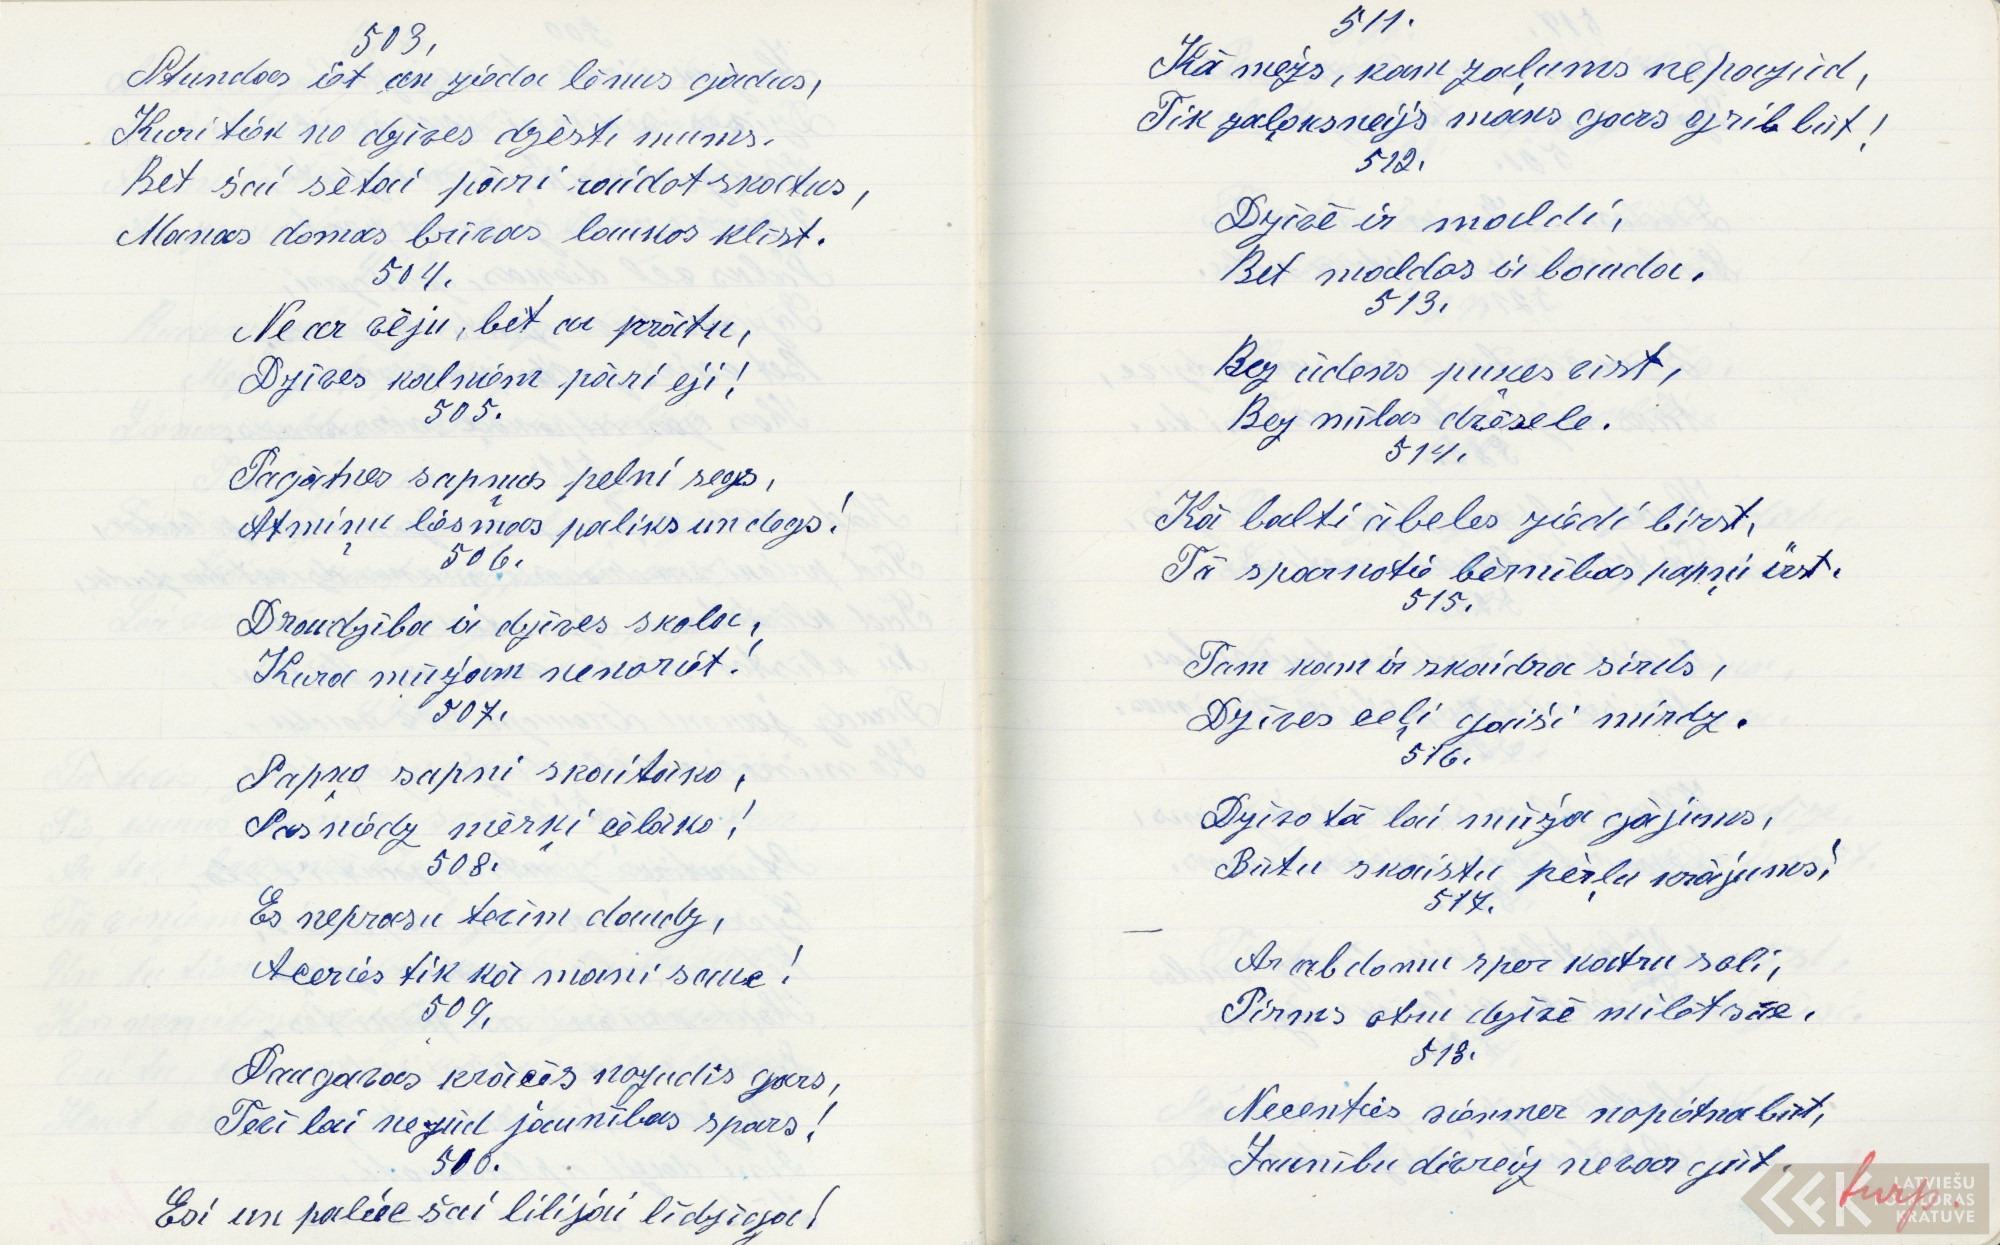 503.
Stundas iet un zieda lēnus gadus,
Kuri tiek no dzīves dzēsti mums.
Bet šai sētai pāri raidot skatus,
Manas domas brīvas laukos klīst.
504.
Ne ar vēju, bet ar prātu,
Dzīves kalniem pāri eji!
505.
Pagātnes sapņus pelni segs,
Atmiņu liesmas paliks un degs!
506.
Draudzība ir dzīves skola,
Kura mūžam nenoriet!
507.
Sapņo sapni skaitāko,
Sasniedz mērķi cēlāko!
508.
Es neprasu tevim daudz,
Aceries tik kā mani sauc!
509.
Daugavas krācēs nozudīs gars,
Teci lai nezūd jaunības spars!
500.
Esi un paliec šai lilijai līdzīga!
511.
Kā mežs, kam zaļums nepazūd,
Tik zaļoksnējs māks gars grib būt!
512.
Dzīvē ir maldi,
Bet maldos ir bauda.
513.
Bez ūdens puķes vīst,
Bez mīlas dvēsele.
514.
Kā balti ābeles ziedi birst,
Tā sparnotie bērnības sapņi irst.
515.
Tam kam ir skaidra sirds,
Dzīves ceļi gaiši mirdz.
516.
Dzīvo tā lai mūža gājums,
Būtu skaistu pērļu krājums!
517.
Ar abdomu sper katru soli,
Pirms otru dzīvē mīlēt sāc.
518.
Necenties vienmēr nopietna būt,
Jaunību divreiz nevar gūt.
turp.
LATVIEŠU
FOLKLORAS
KRĀTUVE